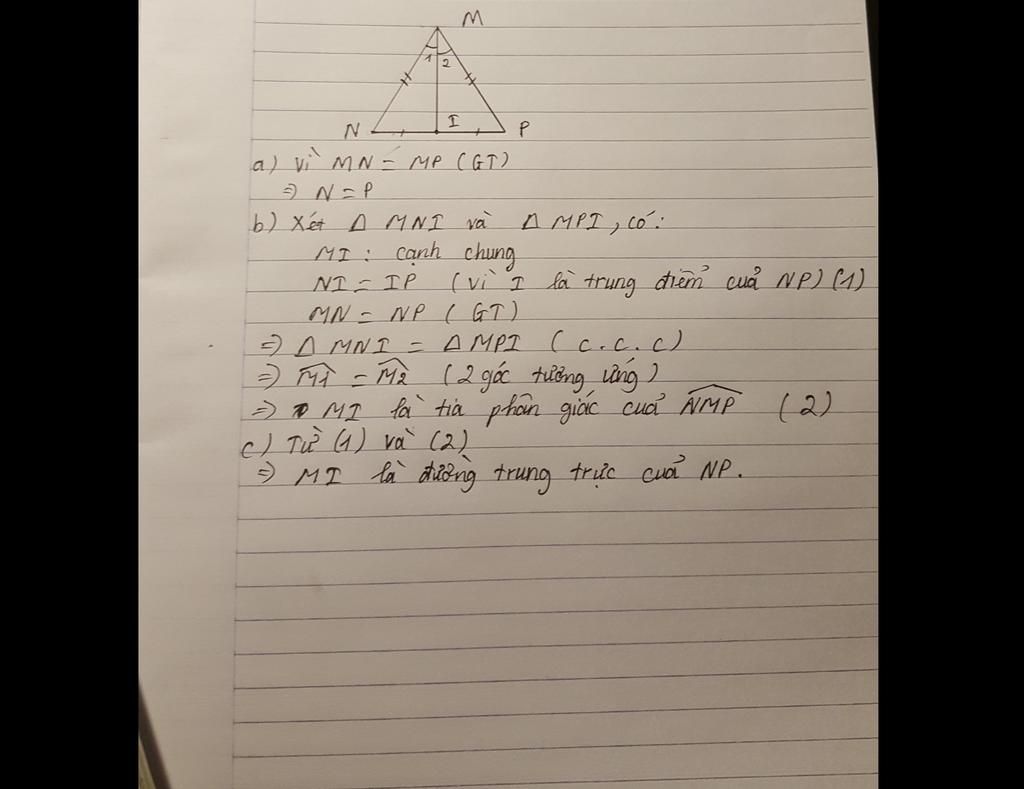 M
1 2
N I P
a) Vì MN = MP (GT)
=> N = P
b) Xét Δ MNI và Δ MPI, có:
MI : cạnh chung
NI = IP (vì I là trung điểm cuả NP) (1)
MN = NP (GT)
=> Δ MNI = Δ MPI (c.c.c)
=> M̂1 = M̂2 (2 góc tương ứng)
=> MI là tia phân giác cuả \widehat{NMP} (2)
c) Từ (1) và (2)
=> MI là đường trung trực cuả NP.